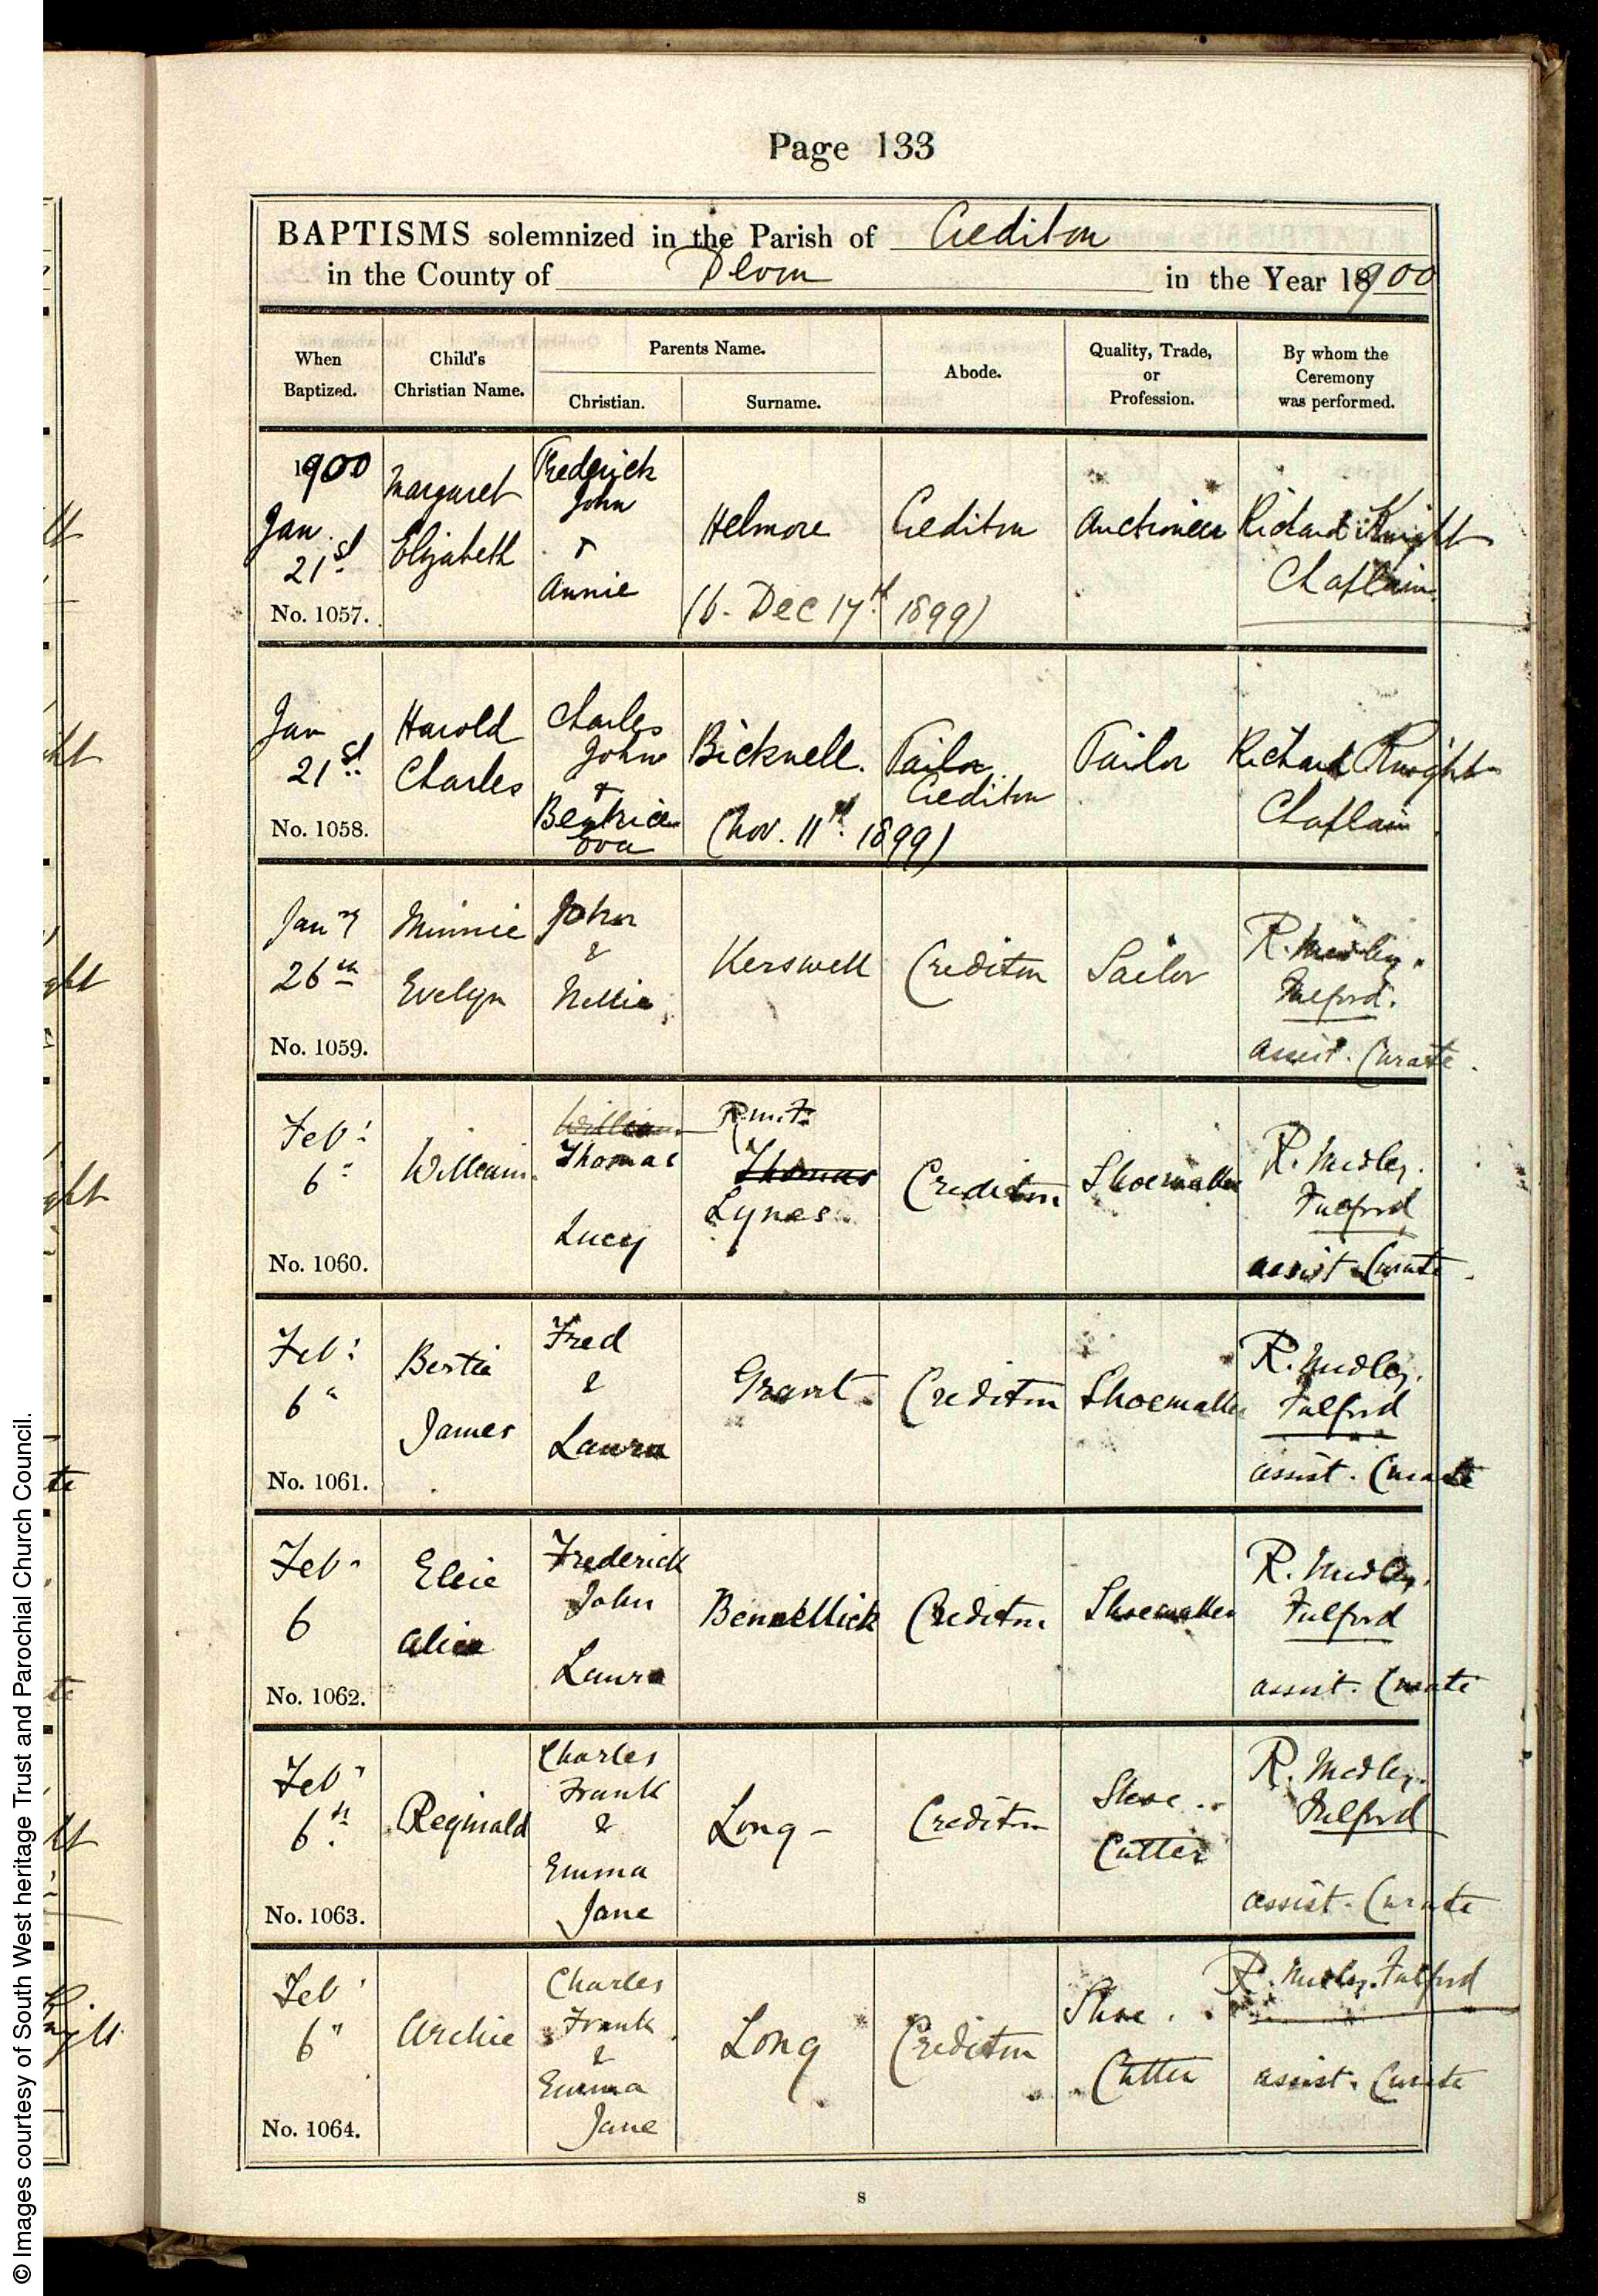 Page 133
BAPTISMS solemnized in the Parish of Crediton
in the County of Devon in the Year 18900
When
Baptized.
Child's
Christian Name.
Parents Name.
Christian.
Surname.
Abode.
Quality, Trade,
or
Profession.
By whom the
Ceremony
was performed.
1900
Jan
21st
No. 1057.
Margaret
Elizabeth
Frederick
John
&
Annie
Helmore
(b. Dec 17th 1899)
Crediton
Auctioneer
Richard Knight
Chaplain
Jan
21st
No. 1058.
Harold
Charles
Charles
John
&
Beatrice
Eva
Bicknell.
(Nov. 11th 1899)
Tailor
Crediton
Tailor
Richard Knight
Chaplain
Jany
26th
No. 1059.
Minnie
Evelyn
John
&
Nellie
Kerswell
Crediton
Sailor
R. Medley.
Fulford.
assist. Curate
Feb:
6
No. 1060.
William
William
Thomas
Lucy
R.m.F.
Thomas
Lynes
Crediton
Shoemaker
R. Medley.
Fulford
assist. Curate
Feb:
6
No. 1061.
Bertie
James
Fred
&
Laura
Grant
Crediton
Shoemaker
R. Medley.
Fulford
assist. Curate
Feb
6
No. 1062.
Elsie
Alice
Frederick
John
Laura
Crediton
Shoemaker
R. Medley.
Fulford
assist. Curate
Feb
6th
No. 1063.
Reginald
Charles
Frank
&
Emma
Jane
Long -
Crediton
Shoe
Cutter
R. Medley.
Fulford
assist. Curate
Feb
6
No. 1064.
Archie
Charles
Frank
&
Emma
Jane
Long
Crediton
Shoe.
Cutter
R. Medley. Fulford
assist. Curate
s
© Images courtesy of South West heritage Trust and Parochial Church Council.